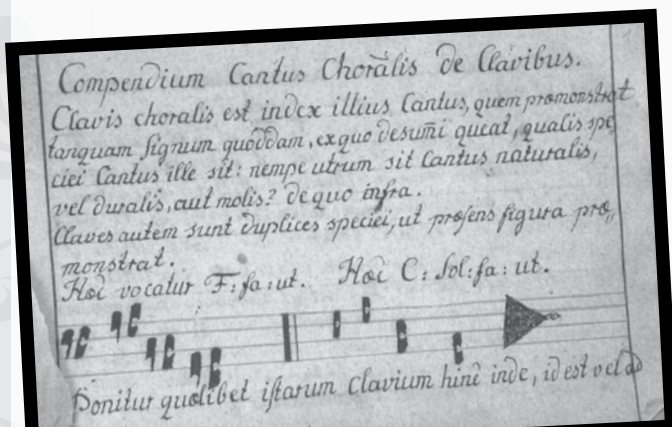 Compendium Cantus Choralis de Clavibus.
Clavis choralis est index illius Cantus, quem præmonstrat
tanquam signum quoddam, ex quo desumi queat, qualis spe
ciei Cantus ille sit: nempe utrum sit Cantus naturalis,
vel duralis, aut molis? de quo infra.
Claves autem sunt duplices speciei, ut præsens figura præ„
monstrat.
Hoc vocatur F: fa: ut. Hoc C: Sol: fa: ut.
Ponitur quælibet istarum Clavium hinc inde, id est vel ad